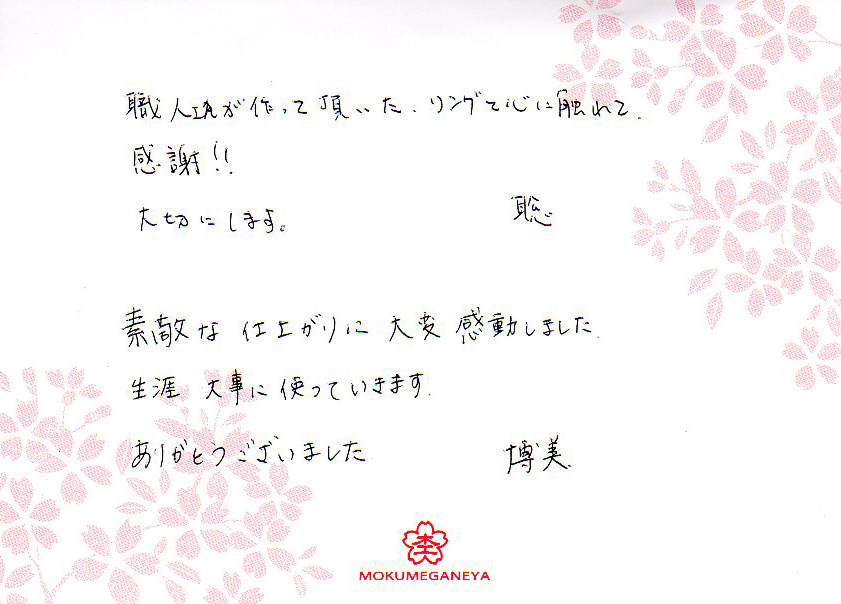 職人が作って頂いた、リングで心に触れて、
感謝!!
大切にします。
聡
素敵な仕上がりに大変感動しました。
生涯大事に使っていきます。
ありがとうございました
博美
MOKUMEGANEYA